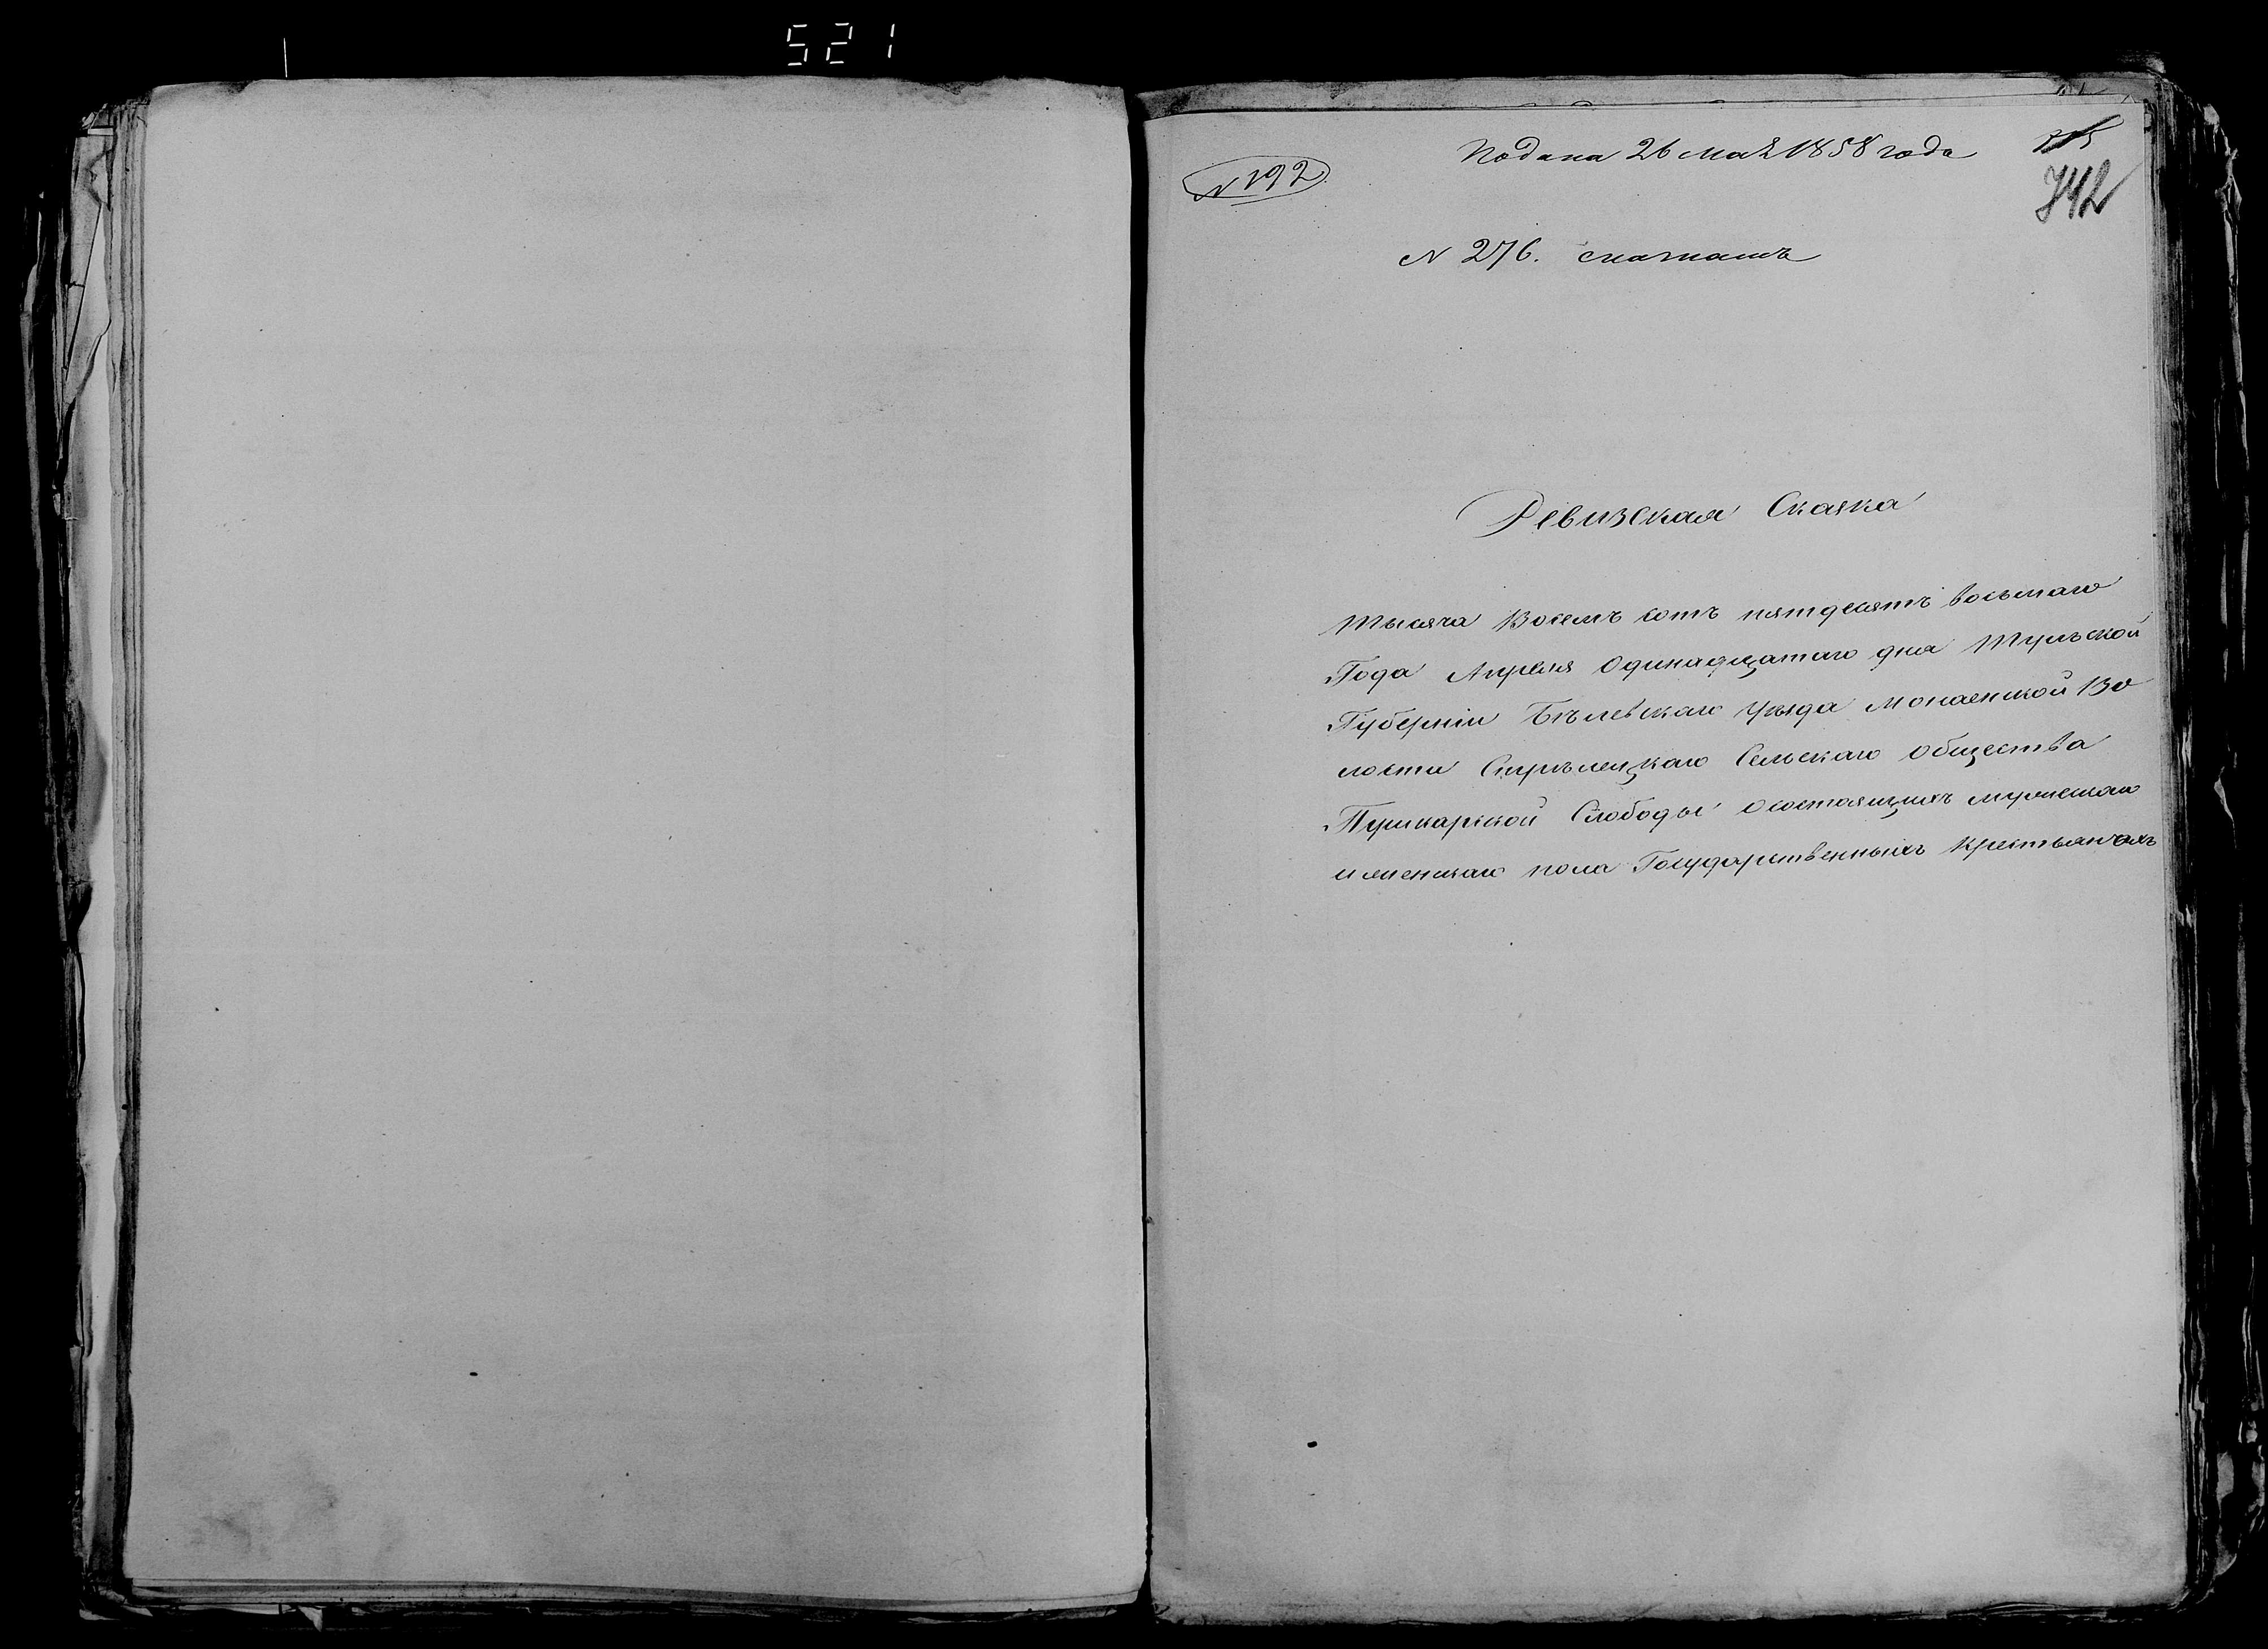 521
Подана 26 мая 1858 года
N 192
742
N 276.
Ревизская Сказка
Тысяча Восемъ сотъ пятдесятъ восьмаго
Года Апреля Одинадцатаго дня Тульской
Губерніи Бѣлевскаго Уѣзда Монаенской Во
лости Стрѣлецкаго Сельскаго общества
Пушкарской Слободы о состоящихъ мужескаго
и женскаго пола Государственныхъ Крестьянахъ